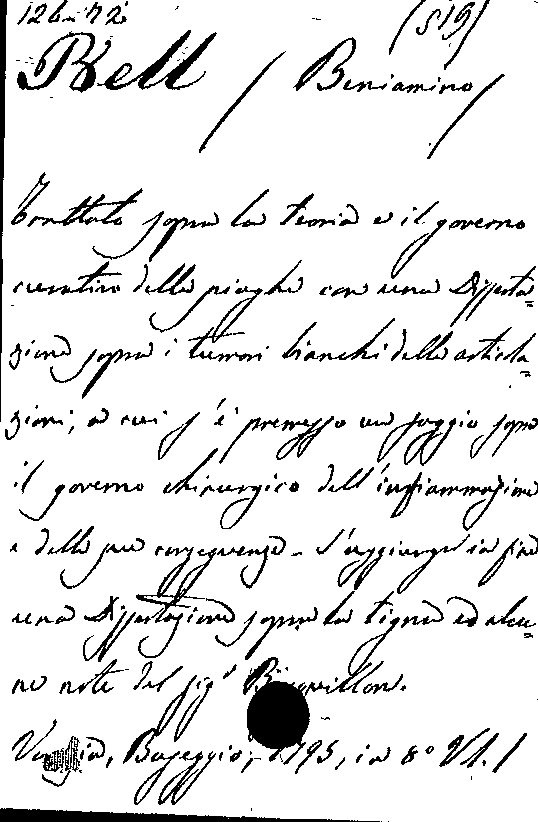 126-72 (S19)
Bell / Beniamino /
Trattato sopra la teoria e il governo
curativo delle piaghe con una Disserta=
zione sopra i tumori bianchi delle articola=
zioni, a cui s'è premesso un saggio sopra
il governo chirurgico dell'infiammazione
e delle sue conseguenze - S'aggiunge in fine
una Dissertazione sopra la tigna ed alcu=
ne note del sig.r Bosquillon.
Venezia, Baseggio, 1795, in 8° Vl. 1